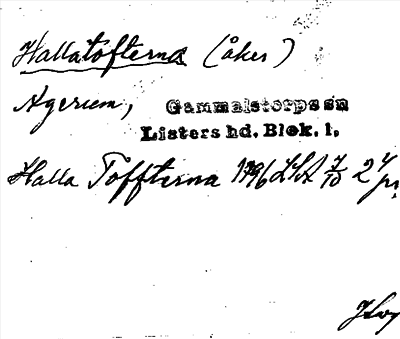 Hallatofterna (åker)
Agerum, Gammalstorps sn
Listers hd. Blek. l.
Halla Toffterna 1796 LSA 7/10 2